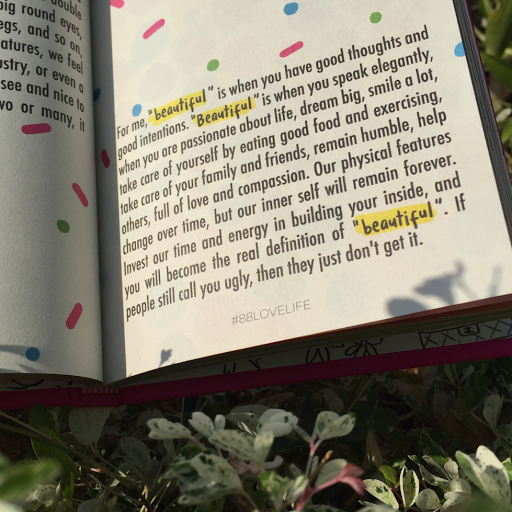 double
big round eyes,
egs, and so on,
atures, we feel
ustry, or even a
see and nice to
wo or many, it
For me, "beautiful" is when you have good thoughts and
good intentions. "Beautiful" is when you speak elegantly,
when you are passionate about life, dream big, smile a lot,
take care of yourself by eating good food and exercising,
take care of your family and friends, remain humble, help
others, full of love and compassion. Our physical features
change over time, but our inner self will remain forever.
Invest our time and energy in building your inside, and
you will become the real definition of "beautiful". If
people still call you ugly, then they just don't get it.
#88LOVELIFE